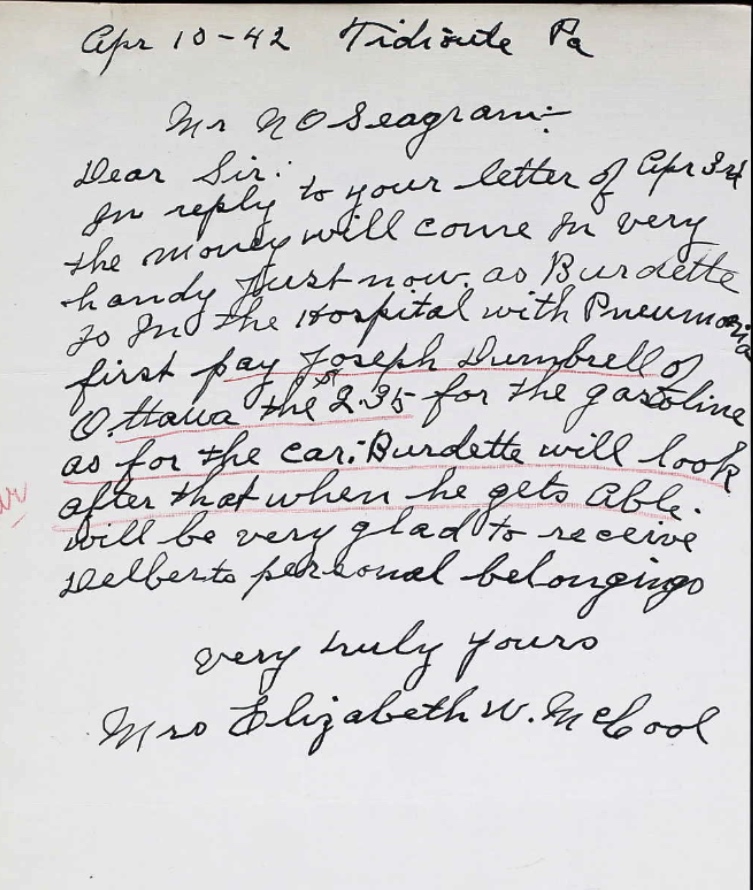 Apr 10-42 Tidioute Pa
Mr N O Seagram:-
Dear Sir:
In reply to your letter of Apr 3rd
the money will come in very
handy Just now. as Burdette
Is In the Hospital with Pneumonia
first pay Joseph Dumbrell of
Ottawa the $2.35 for the gasoline
as for the car: Burdette will look
after that when he gets Able.
will be very glad to receive
Delberts personal belongings
very truly yours
Mrs Elizabeth W. McCool